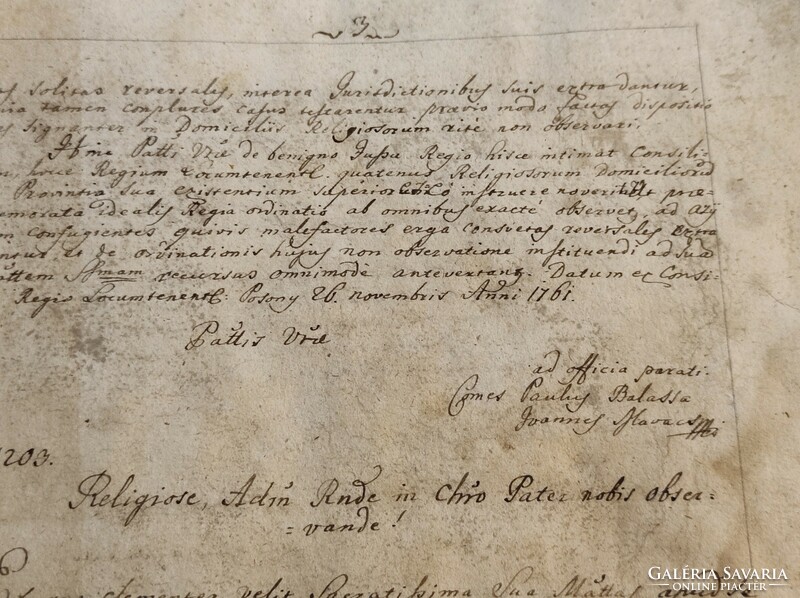 3
solitas reversales, interea Jurisdictionibus suis extradantur,
tamen complures casus testarentur prævio modo factas dispositio
Signanter in Domiciliis Religiosorum rité non observari.
Hinc Pattti Vræ de benigno Jussu Regio hisce intimat Consili-
hocce Regium Locumtenentl. quatenus Religiosorum Domiciliorũ
Provintia sua existentium instruere noverit præ-
memorata idealis Regia ordinatio ab omnibus exacté observet, ad Azy
Confugientes quivis malefactores erga Consvetas reversales Extra
et de ordinationis hujus non observatione instituendi ad Suã
Ssmam recursus omnimode antevertanʒ. Datum ex Consi-
Regio Locumtenentl: Posony 26. novembris Anni 1761.
Pattis Vræ
ad officia parati.
Comes Paulus Balassa
Joannes Slavacs
1203.
Religiose, Adm̃ Rnde in Chr̃o Pater nobis obser-
=vande!
clementer velit Sacratissima Sua Mattas
GALÉRIA SAVARIA
ONLINE PIACTÉR